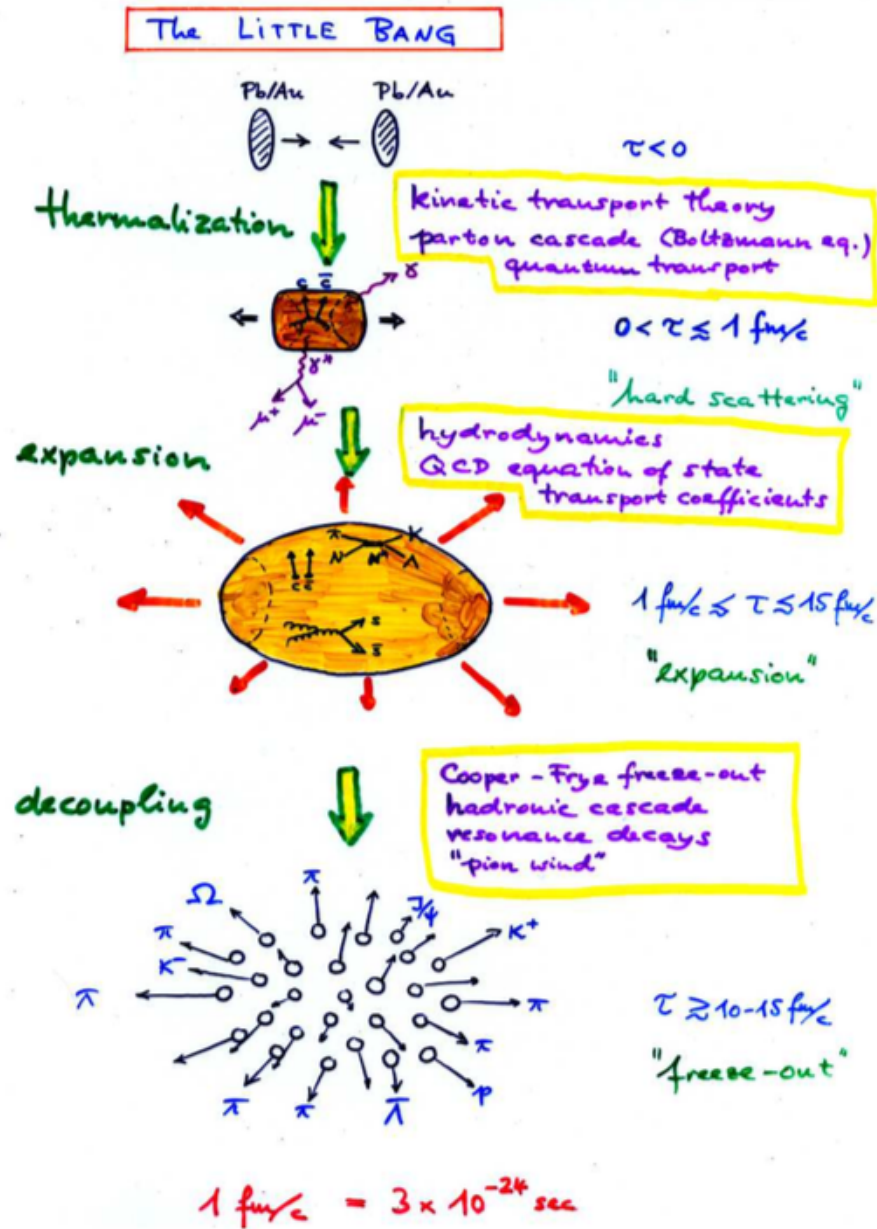 The LITTLE BANG
Pb/Au Pb/Au
τ < 0
thermalization
kinetic transport theory
parton cascade (Boltzmann eq.)
quantum transport
c c̄ γ
0 < τ ≲ 1 fm/c
γ*
μ⁺ μ⁻
"hard scattering"
expansion
hydrodynamics
QCD equation of state
transport coefficients
π K
N N* Λ
c c̄
1 fm/c ≲ τ ≲ 15 fm/c
s
s̄
"expansion"
decoupling
Cooper-Frye freeze-out
hadronic cascade
resonance decays
"pion wind"
Ω π J/ψ
π K⁺
K⁻
π π
τ ≳ 10-15 fm/c
π
"freeze-out"
π π Λ̄ p
1 fm/c = 3 × 10⁻²⁴ sec